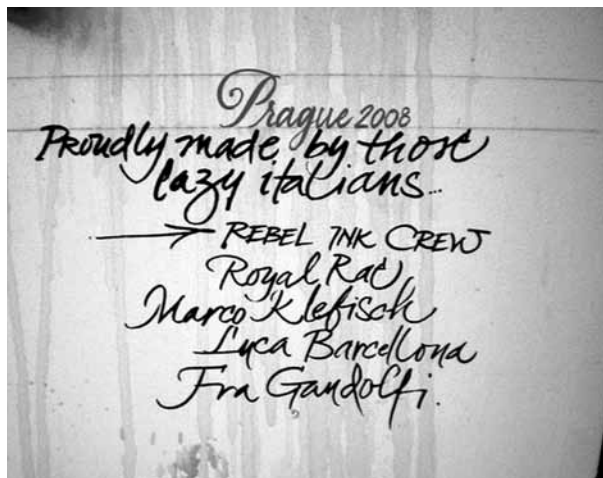 Prague 2008
Proudly made by those
lazy italians...
REBEL INK CREW
Royal Rad
Marco Klefisch
Luca Barcellona
Fra Gandolfi.